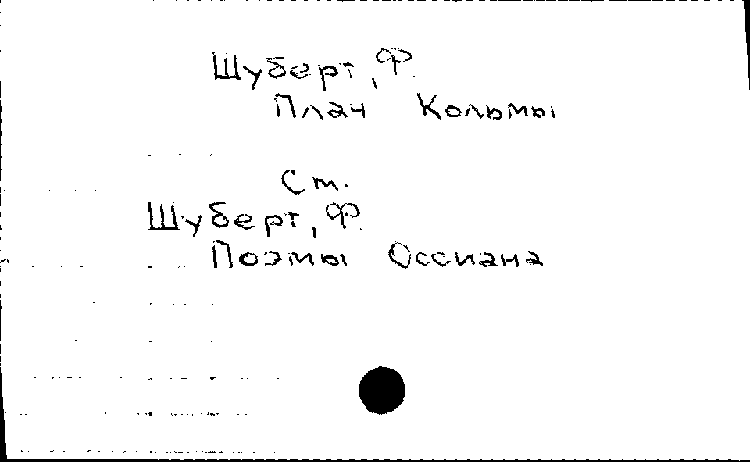 Шуберт, Ф.
Плач Кольмы
См.
Шуберт, Ф.
Поэмы Оссиана